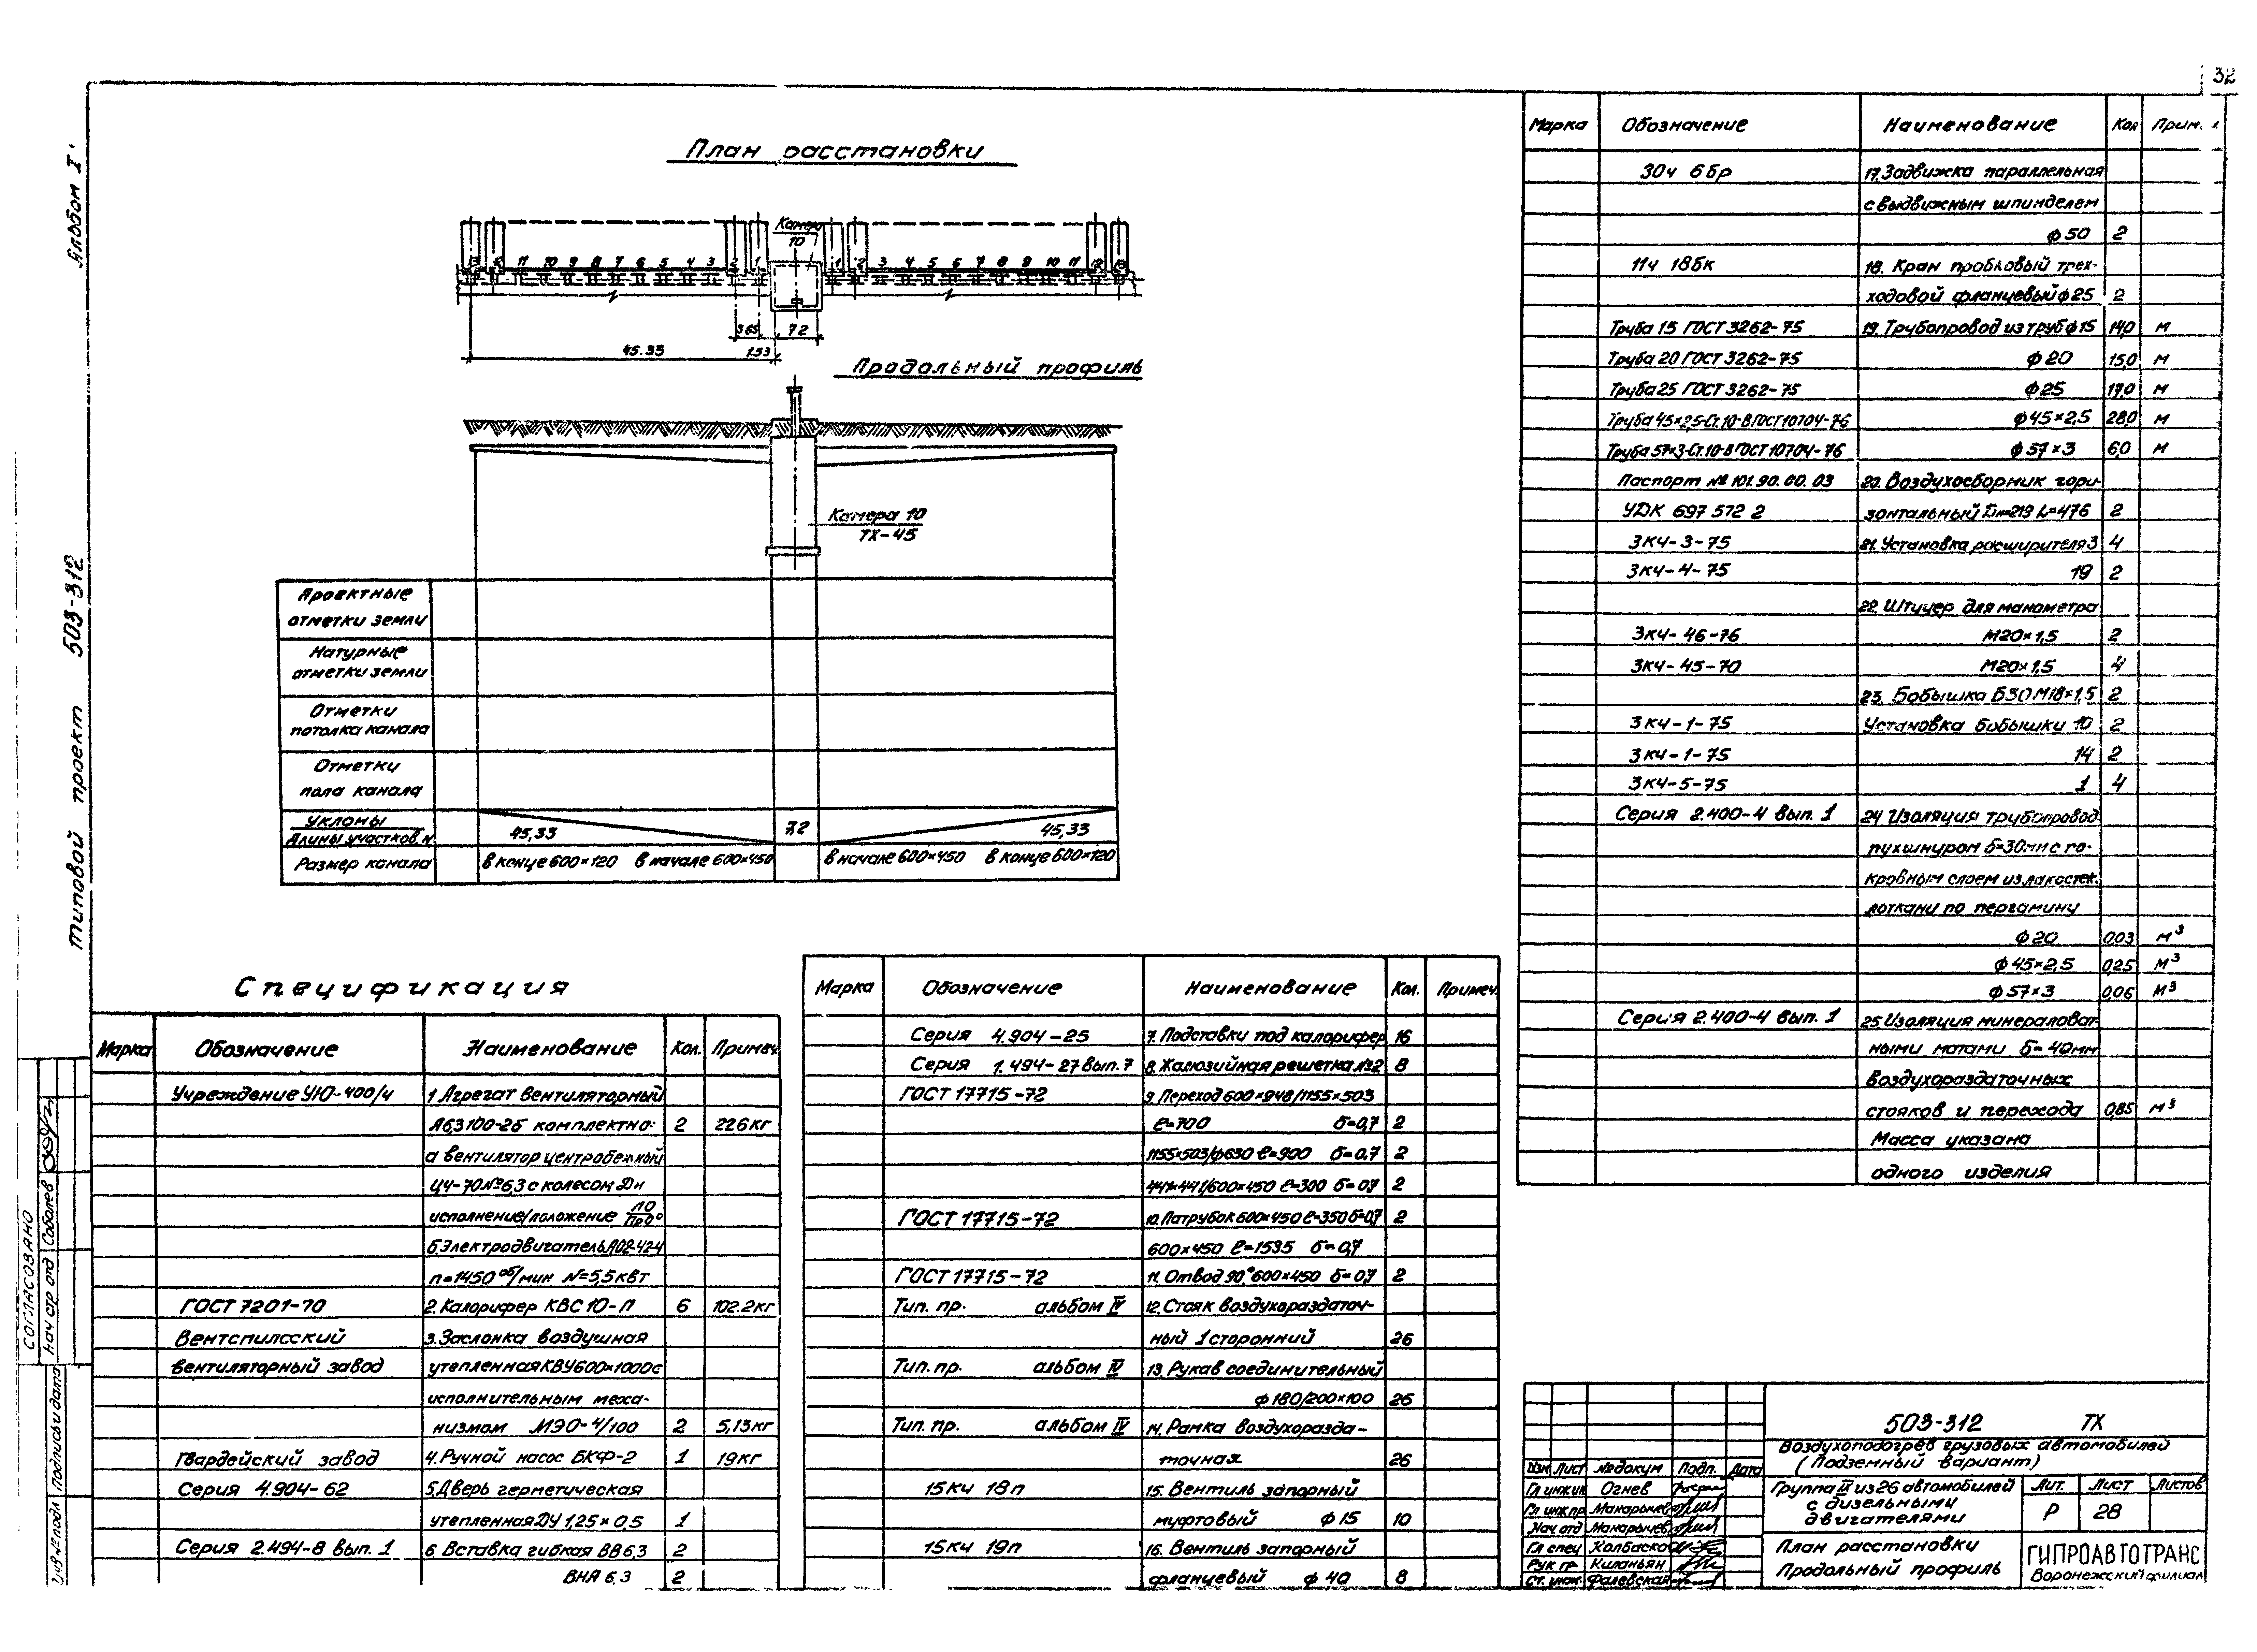 32
Альбом I
типовой проект 503-312
План расстановки
Камера
10
13 12 11 10 9 8 7 6 5 4 3 2 1
1 2 3 4 5 6 7 8 9 10 11 12 13
3.65 7.2
45.33 1.53
Продольный профиль
Камера 10
ТХ-45
Проектные
отметки земли
Натурные
отметки земли
Отметки
потолка канала
Отметки
пола канала
Уклоны
Длины участков, м
45,33 7,2 45,33
Размер канала в конце 600×120 в начале 600×450 в начале 600×450 в конце 600×120
Спецификация
Марка Обозначение Наименование Кол. Примеч.
Учреждение УЮ-400/4 1. Агрегат вентиляторный
А63100-2б комплектно: 2 226кг
а вентилятор центробежный
Ц4-70№6,3 с колесом Дн
исполнение/положение ЛО/ПР0°
б Электродвигатель АО2-42-4
n=1450 об/мин N=5,5квт
ГОСТ 7201-70 2. Калорифер КВС 10-П 6 102.2кг
Вентспилсский 3. Заслонка воздушная
вентиляторный завод утепленная КВУ600×1000с
исполнительным меха-
низмом МЭО-4/100 2 5,13кг
Гвардейский завод 4. Ручной насос БКФ-2 1 19кг
Серия 4.904-62 5. Дверь герметическая
утепленная ДУ 1,25×0,5 1
Серия 2.494-8 вып. 1 6. Вставка гибкая ВВ6,3 2
ВНА 6,3 2
Марка Обозначение Наименование Кол. Примеч.
Серия 4.904-25 7. Подставки под калорифер 16
Серия 1.494-27 вып. 7 8. Жалюзийная решетка №2 8
ГОСТ 17715-72 9. Переход 600×948/1155×503
ℓ=700 δ=0,7 2
1155×503/ф630 ℓ=900 δ=0,7 2
441×441/600×450 ℓ=300 δ=07 2
ГОСТ 17715-72 10. Патрубок 600×450 ℓ=350 δ=0,7 2
600×450 ℓ=1535 δ=0,7
ГОСТ 17715-72 11. Отвод 90° 600×450 δ=0,7 2
Тип. пр. альбом IV 12. Стояк воздухораздаточ-
ный 1 сторонний 26
Тип. пр. альбом IV 13. Рукав соединительный
ф180/200×100 26
Тип. пр. альбом IV 14. Рамка воздухоразда-
точная 26
15кч 18п 15. Вентиль запорный
муфтовый ф15 10
15кч 19п 16. Вентиль запорный
фланцевый ф40 8
Марка Обозначение Наименование Кол Прим.
30ч 6бр 17. Задвижка параллельная
с выдвижным шпинделем
ф50 2
11ч 18бк 18. Кран пробковый трех-
ходовой фланцевый ф25 2
Труба 15 ГОСТ 3262-75 19. Трубопровод из труб ф15 14,0 м
Труба 20 ГОСТ 3262-75 ф20 15,0 м
Труба 25 ГОСТ 3262-75 ф25 17,0 м
Труба 45×2,5-Ст.10-В ГОСТ10704-76 ф45×2,5 28,0 м
Труба 57×3-Ст.10-В ГОСТ 10704-76 ф57×3 6,0 м
Паспорт № 101.90.00.03 20. Воздухосборник гори-
УДК 697 572 2 зонтальный Dн=219 L=476 2
3КЧ-3-75 21. Установка расширителя 3 4
3КЧ-4-75 19 2
22. Штуцер для манометра
3КЧ-46-76 М20×1,5 2
3КЧ-45-70 М20×1,5 4
23. Бобышка Б30 М18×1,5 2
3КЧ-1-75 Установка бобышки 10 2
3КЧ-1-75 14 2
3КЧ-5-75 1 4
Серия 2.400-4 вып. 1 24 Изоляция трубопровод
пухшнуром δ=30мм с по-
кровным слоем из лакостек-
лоткани по пергамину
ф20 0,03 м³
ф45×2,5 0,25 м³
ф57×3 0,06 м³
Серия 2.400-4 вып. 1 25. Изоляция минераловат-
ными матами δ=40мм
воздухораздаточных
стояков и перехода 0,85 м³
Масса указана
одного изделия
СОГЛАСОВАНО
Нач стр отд Соболев
Инв № подл Подпись и дата
503-312 ТХ
Воздухоподогрев грузовых автомобилей
(Подземный вариант)
Изм Лист № докум Подп. Дата
Гл инж ин Огнев
Гл инж пр Макарычев
Нач. отд Макарычев
Гл спец Колбаско
Рук гр Киланьян
Ст. инж. Фалевская
Группа II из 26 автомобилей
с дизельными
двигателями
Лит. Лист Листов
Р 28
План расстановки
Продольный профиль
ГИПРОАВТОТРАНС
Воронежский филиал